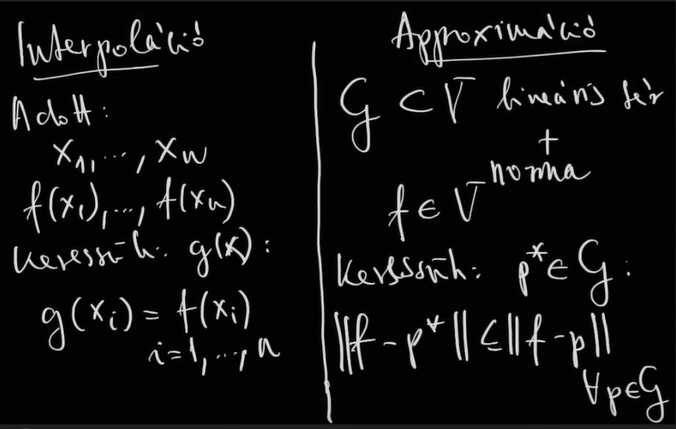 Interpoláció
Adott:
x₁, ..., xₙ
f(x₁), ..., f(xₙ)
Keressük: g(x):
g(xᵢ) = f(xᵢ)
i=1, ..., n
Approximáció
G ⊂ V lineáris tér
+
norma
f ∈ V
Keressük: p* ∈ G:
||f - p*|| ≤ ||f - p||
∀p∈G